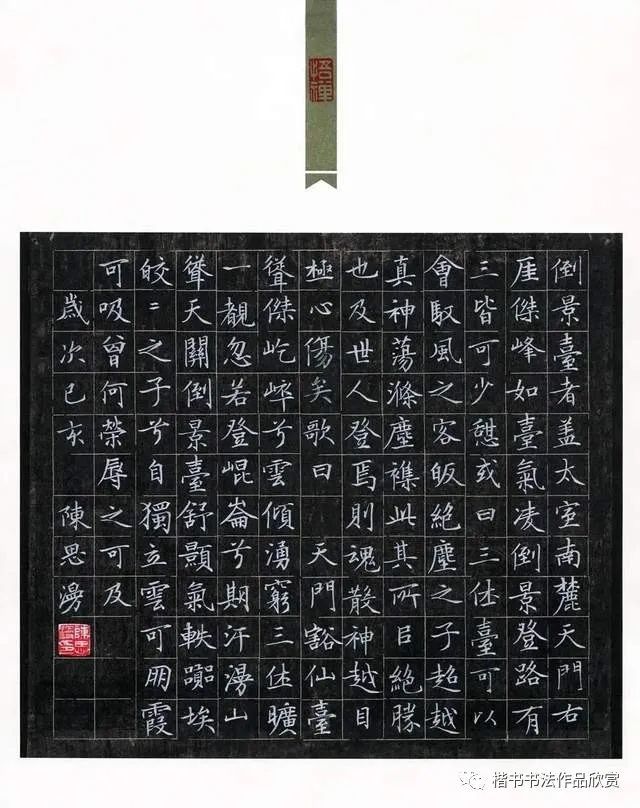 悟禪
倒景臺者蓋太室南麓天門右
厓傑峰如臺氣凌倒景登路有
三皆可少憇或曰三休臺可以
會馭風之客皈絕塵之子超越
真神蕩滌塵襍此其所㠯絕勝
也及世人登焉則魂散神越目
極心傷矣歌曰 天門豁仙臺
聳傑屹崪兮雲傾湧窮三休曠
一覩忽若登崐崙兮期汗漫山
聳天關倒景臺舒顥氣軼埃
皎〻之子兮自獨立雲可朋霞
可吸曾何榮辱之可及
歲次己亥 陳思漫
楷书书法作品欣赏